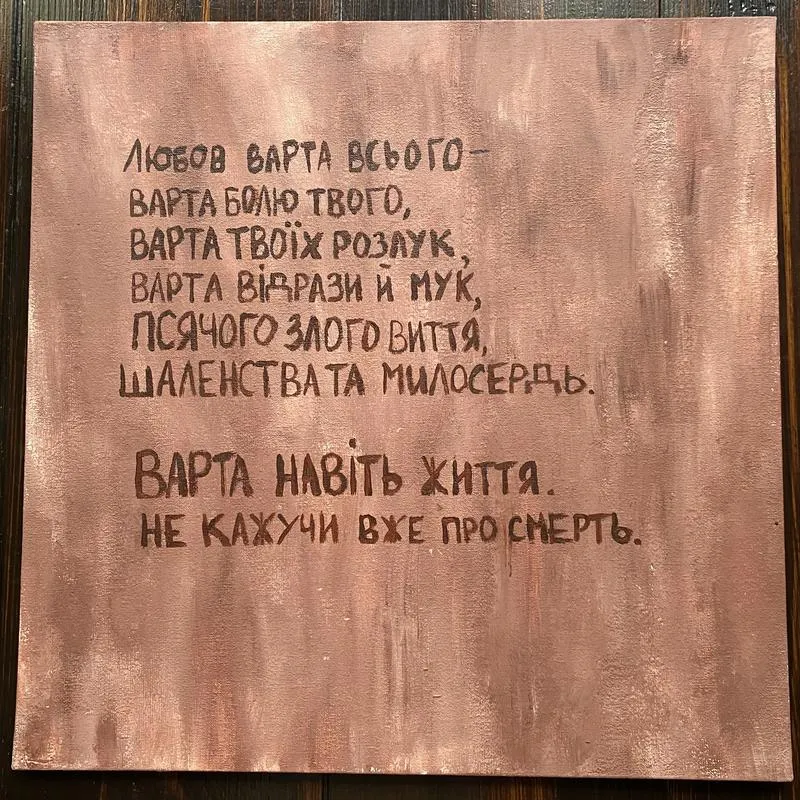 ЛЮБОВ ВАРТА ВСЬОГО–
ВАРТА БОЛЮ ТВОГО,
ВАРТА ТВОЇХ РОЗЛУК,
ВАРТА ВІДРАЗИ Й МУК,
ПСЯЧОГО ЗЛОГО ВИТТЯ,
ШАЛЕНСТВА ТА МИЛОСЕРДЬ.
ВАРТА НАВІТЬ ЖИТТЯ.
НЕ КАЖУЧИ ВЖЕ ПРО СМЕРТЬ.